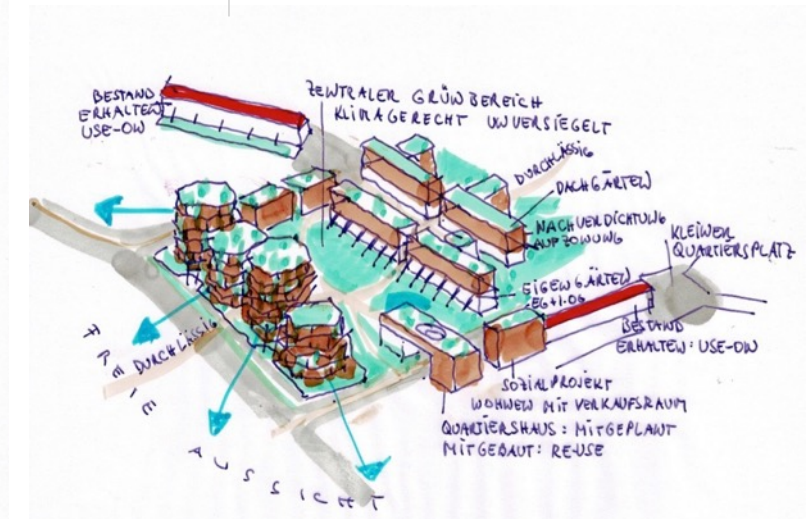 BESTAND
ERHALTEN
USE-ON
ZENTRALER GRÜNBEREICH
KLIMAGERECHT UNVERSIEGELT
DURCHLÄSSIG
DACHGÄRTEN
NACHVERDICHTUNG
AUFZONUNG
KLEINER
QUARTIERSPLATZ
EIGENGÄRTEN
EG+1.OG
BESTAND
ERHALTEN: USE-ON
SOZIALPROJEKT
WOHNEN MIT VERKAUFSRAUM
QUARTIERSHAUS: MITGEPLANT
MITGEBAUT: RE-USE
DURCHLÄSSIG
FREIE
AUSSICHT